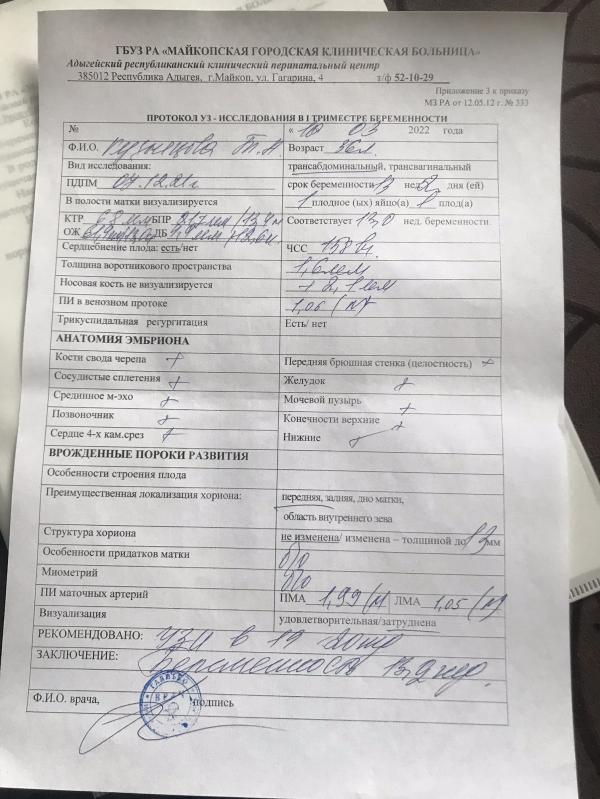 ГБУЗ РА «МАЙКОПСКАЯ ГОРОДСКАЯ КЛИНИЧЕСКАЯ БОЛЬНИЦА»
Адыгейский республиканский клинический перинатальный центр
385012 Республика Адыгея, г.Майкоп, ул. Гагарина, 4 т/ф 52-10-29
Приложение 3 к приказу
МЗ РА от 12.05.12 г. № 333
ПРОТОКОЛ УЗ - ИССЛЕДОВАНИЯ В I ТРИМЕСТРЕ БЕРЕМЕННОСТИ
№ « 10 03 2022 года
Ф.И.О. Кузнецова Т. А. Возраст 36л.
Вид исследования: трансабдоминальный, трансвагинальный
ПДПМ 07.12.21г срок беременности 13 нед 2 дня (ей)
В полости матки визуализируется 1 плодное (ых) яйцо(а) 1 плод(а)
КТР мм БПР Соответствует 13,0 нед. беременности.
ОЖ ДБ
Сердцебиение плода: есть/нет ЧСС 158
Толщина воротникового пространства 1,6мм
Носовая кость не визуализируется + 2,1мм
ПИ в венозном протоке 1,06 (N)
Трикуспидальная регургитация Есть/ нет
АНАТОМИЯ ЭМБРИОНА
Кости свода черепа + Передняя брюшная стенка (целостность) +
Сосудистые сплетения + Желудок +
Срединное м-эхо + Мочевой пузырь +
Позвоночник + Конечности верхние +
Сердце 4-х кам.срез + Нижние +
ВРОЖДЕННЫЕ ПОРОКИ РАЗВИТИЯ
Особенности строения плода
Преимущественная локализация хориона: передняя, задняя, дно матки,
область внутреннего зева
Структура хориона не изменена/ изменена – толщиной до 13 мм
Особенности придатков матки б/о
Миометрий б/о
ПИ маточных артерий ПМА 1,99 (N) ЛМА 1,05 (N)
Визуализация удовлетворительная/затруднена
РЕКОМЕНДОВАНО: УЗИ в 19
ЗАКЛЮЧЕНИЕ: Беременность 13,2 нед.
Ф.И.О. врача, подпись